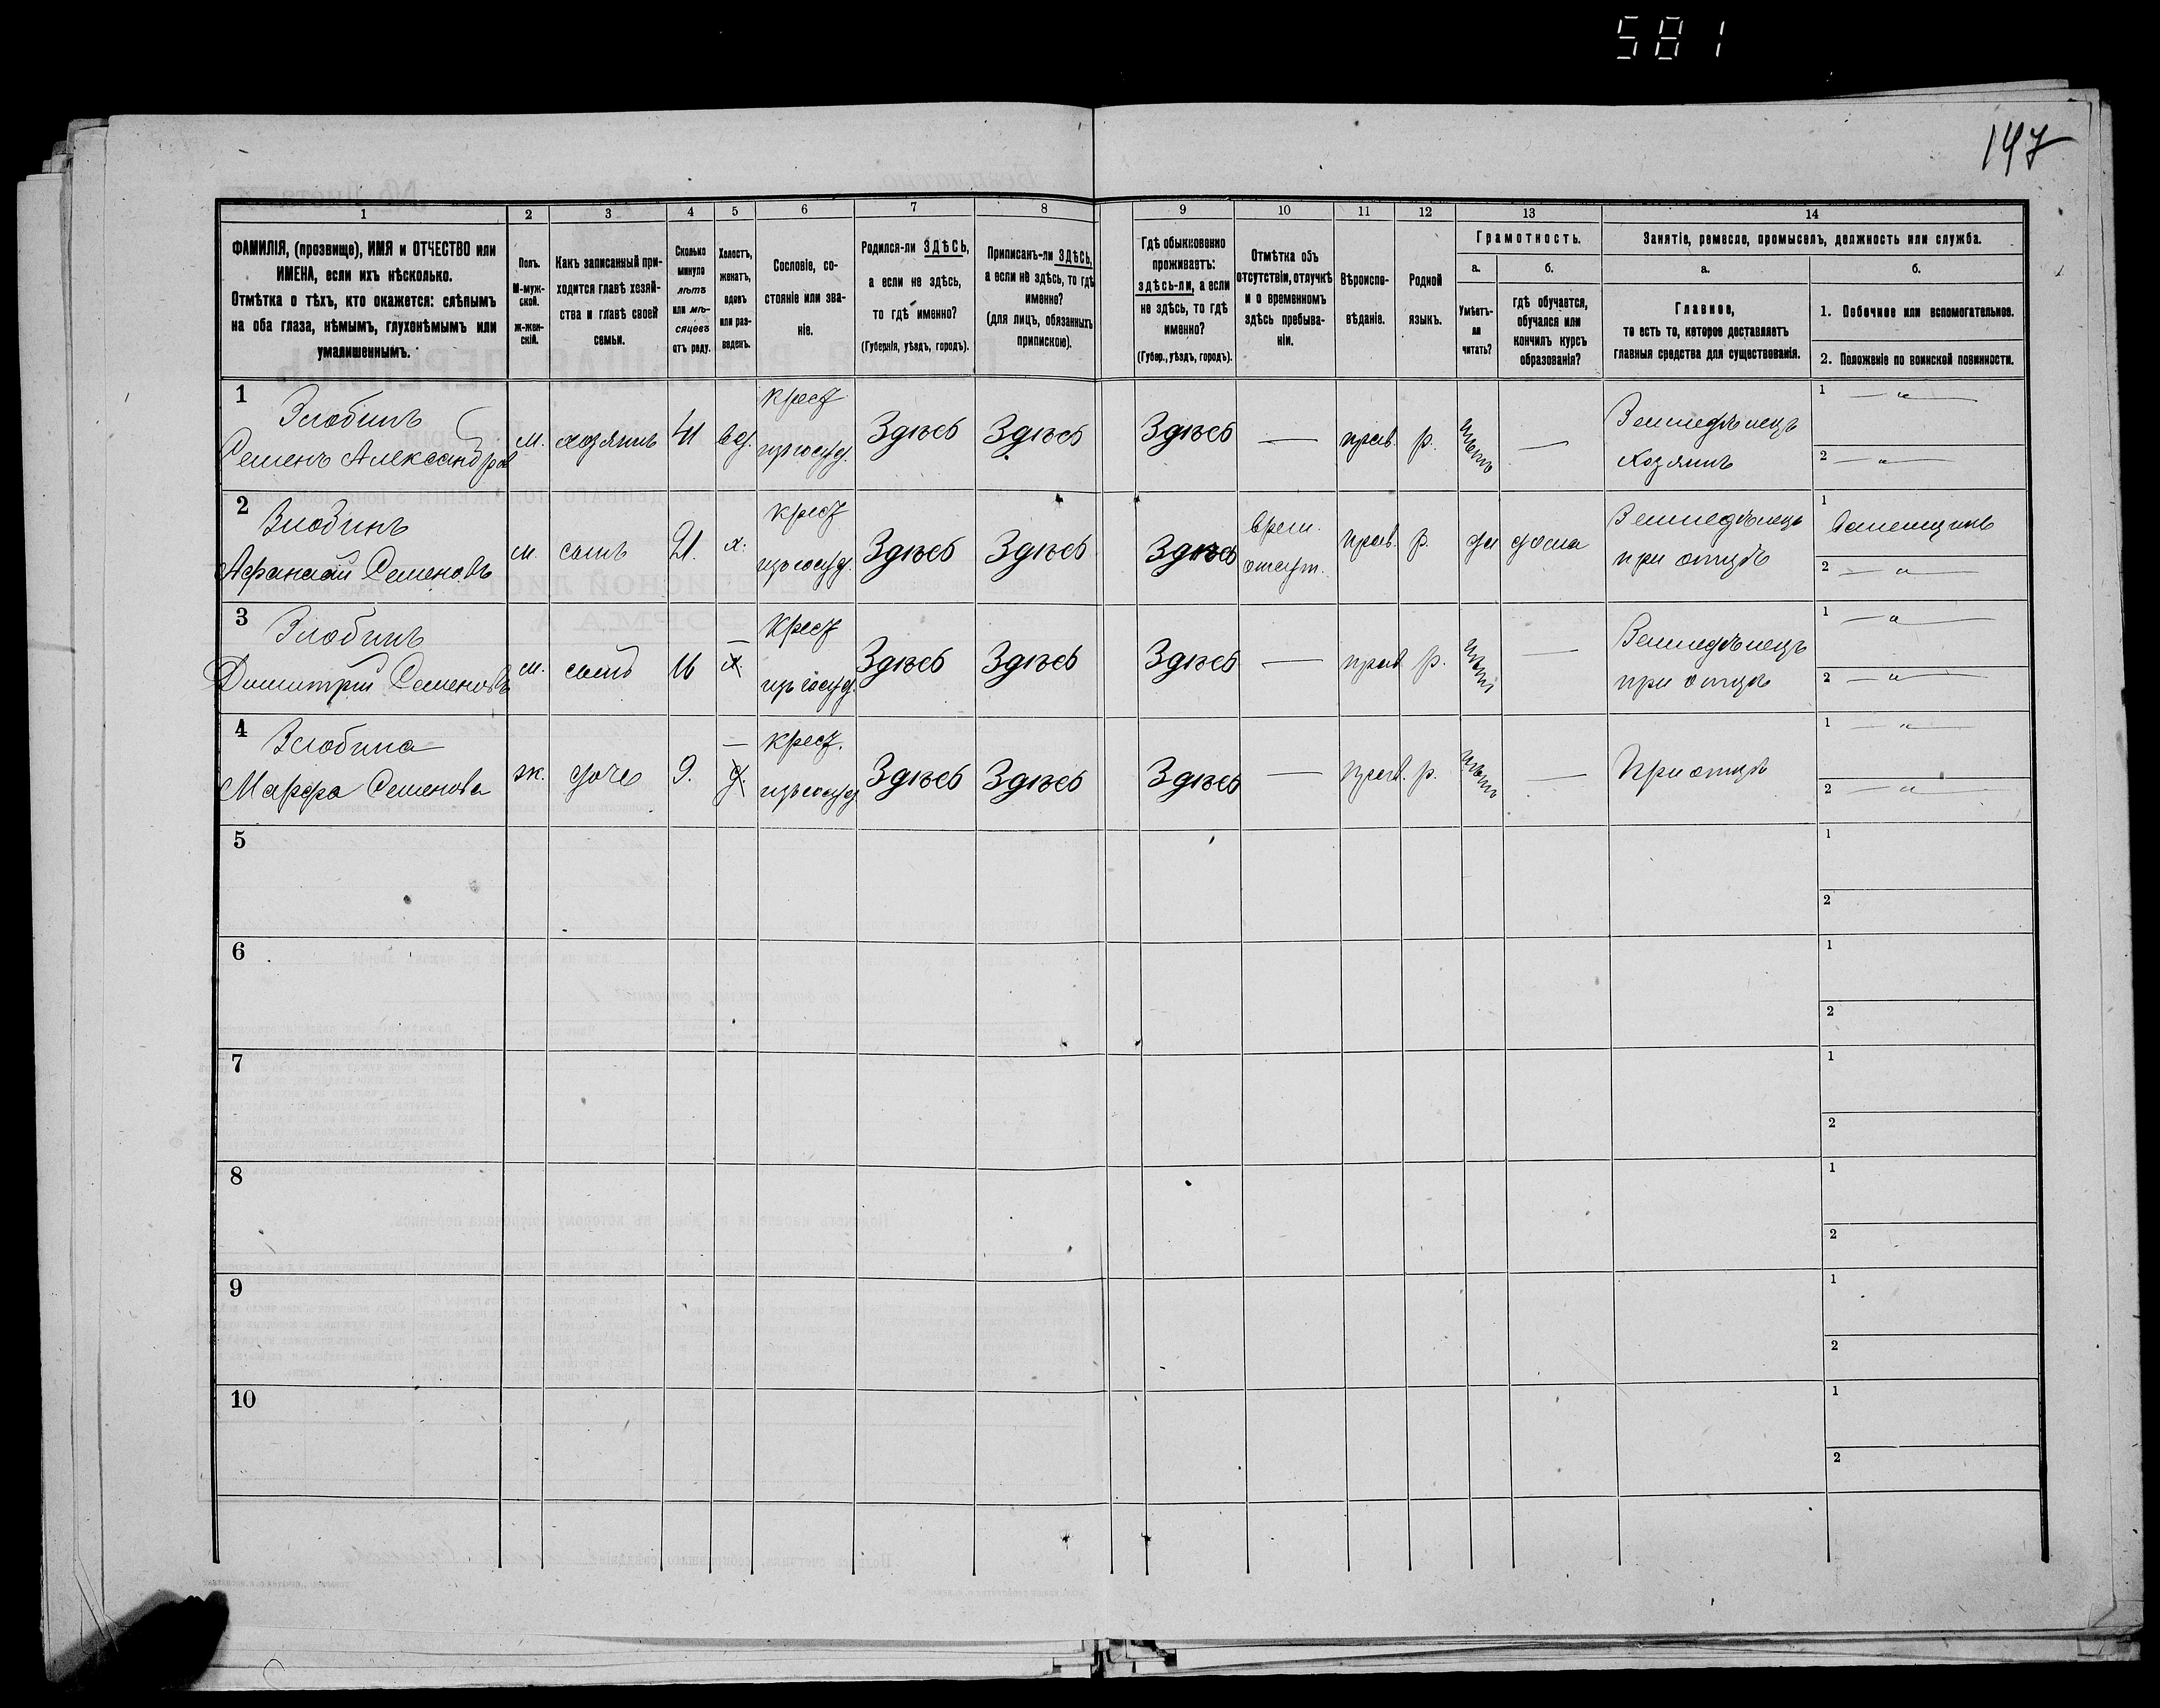 581
147
1
2
3
4
5
6
7
8
9
10
11
12
13
14
ФАМИЛІЯ, (прозвище), ИМЯ и ОТЧЕСТВО или
ИМЕНА, если ихъ нѣсколько.
Отмѣтка о тѣхъ, кто окажется: слѣпымъ
на оба глаза, нѣмымъ, глухонѣмымъ или
умалишеннымъ.
Полъ.
М-муж-
ской.
ж-жен-
скій.
Какъ записанный при-
ходится главѣ хозяй-
ства и главѣ своей
семьи.
Сколько
минуло
лѣтъ
или мѣ-
сяцевъ
отъ роду.
Холостъ,
женатъ,
вдовъ
или раз-
веденъ.
Сословіе, со-
стояніе или зва-
ніе.
Родился-ли ЗДѢСЬ,
а если не здѣсь,
то гдѣ именно?
(Губернія, уѣздъ, городъ).
Приписанъ-ли ЗДѢСЬ,
а если не здѣсь, то гдѣ
именно?
(для лицъ, обязанныхъ
припискою).
Гдѣ обыкновенно
проживаетъ:
ЗДѢСЬ-ЛИ, а если
не здѣсь, то гдѣ
именно?
(Губер., уѣздъ, городъ).
Отмѣтка объ
отсутствіи, отлучкѣ
и о временномъ
здѣсь пребыва-
ніи.
Вѣроиспо-
вѣданіе.
Родной
языкъ.
Грамотность.
а.
Умѣетъ-
ли
читать?
б.
гдѣ обучается,
обучался или
кончилъ курсъ
образованія?
Занятіе, ремесло, промыселъ, должность или служба.
а.
Главное,
то есть то, которое доставляетъ
главныя средства для существованія.
б.
1. Побочное или вспомогательное.
2. Положеніе по воинской повинности.
1
Злобинъ
Семенъ Александров
м.
хозяинъ
41
вд.
крест
изъ госуд.
Здѣсь
Здѣсь
Здѣсь
—
прав.
р.
нѣтъ
—
Земледѣлецъ
Хозяинъ
1 — " —
2 — " —
2
Злобинъ
Афанасій Семеновъ
м.
сынъ
21.
х.
крест
изъ госуд.
Здѣсь
Здѣсь
Здѣсь
врем.
отсут.
прав.
р.
да
дома
Земледѣлецъ
при отцѣ
1
2 — " —
3
Злобинъ
Димитрій Семеновъ
м.
сынъ
16
—
х.
Крест
изъ госуд.
Здѣсь
Здѣсь
Здѣсь
—
прав
р.
нѣтъ
—
Земледѣлецъ
при отцѣ
1 — " —
2 — " —
4
Злобина
Марфа Семенова
ж.
дочь
9.
—
д.
крест.
изъ госуд
Здѣсь
Здѣсь
Здѣсь
—
прав.
р.
нѣтъ
—
При отцѣ
1 — " —
2 — " —
5
1
2
6
1
2
7
1
2
8
1
2
9
1
2
10
1
2